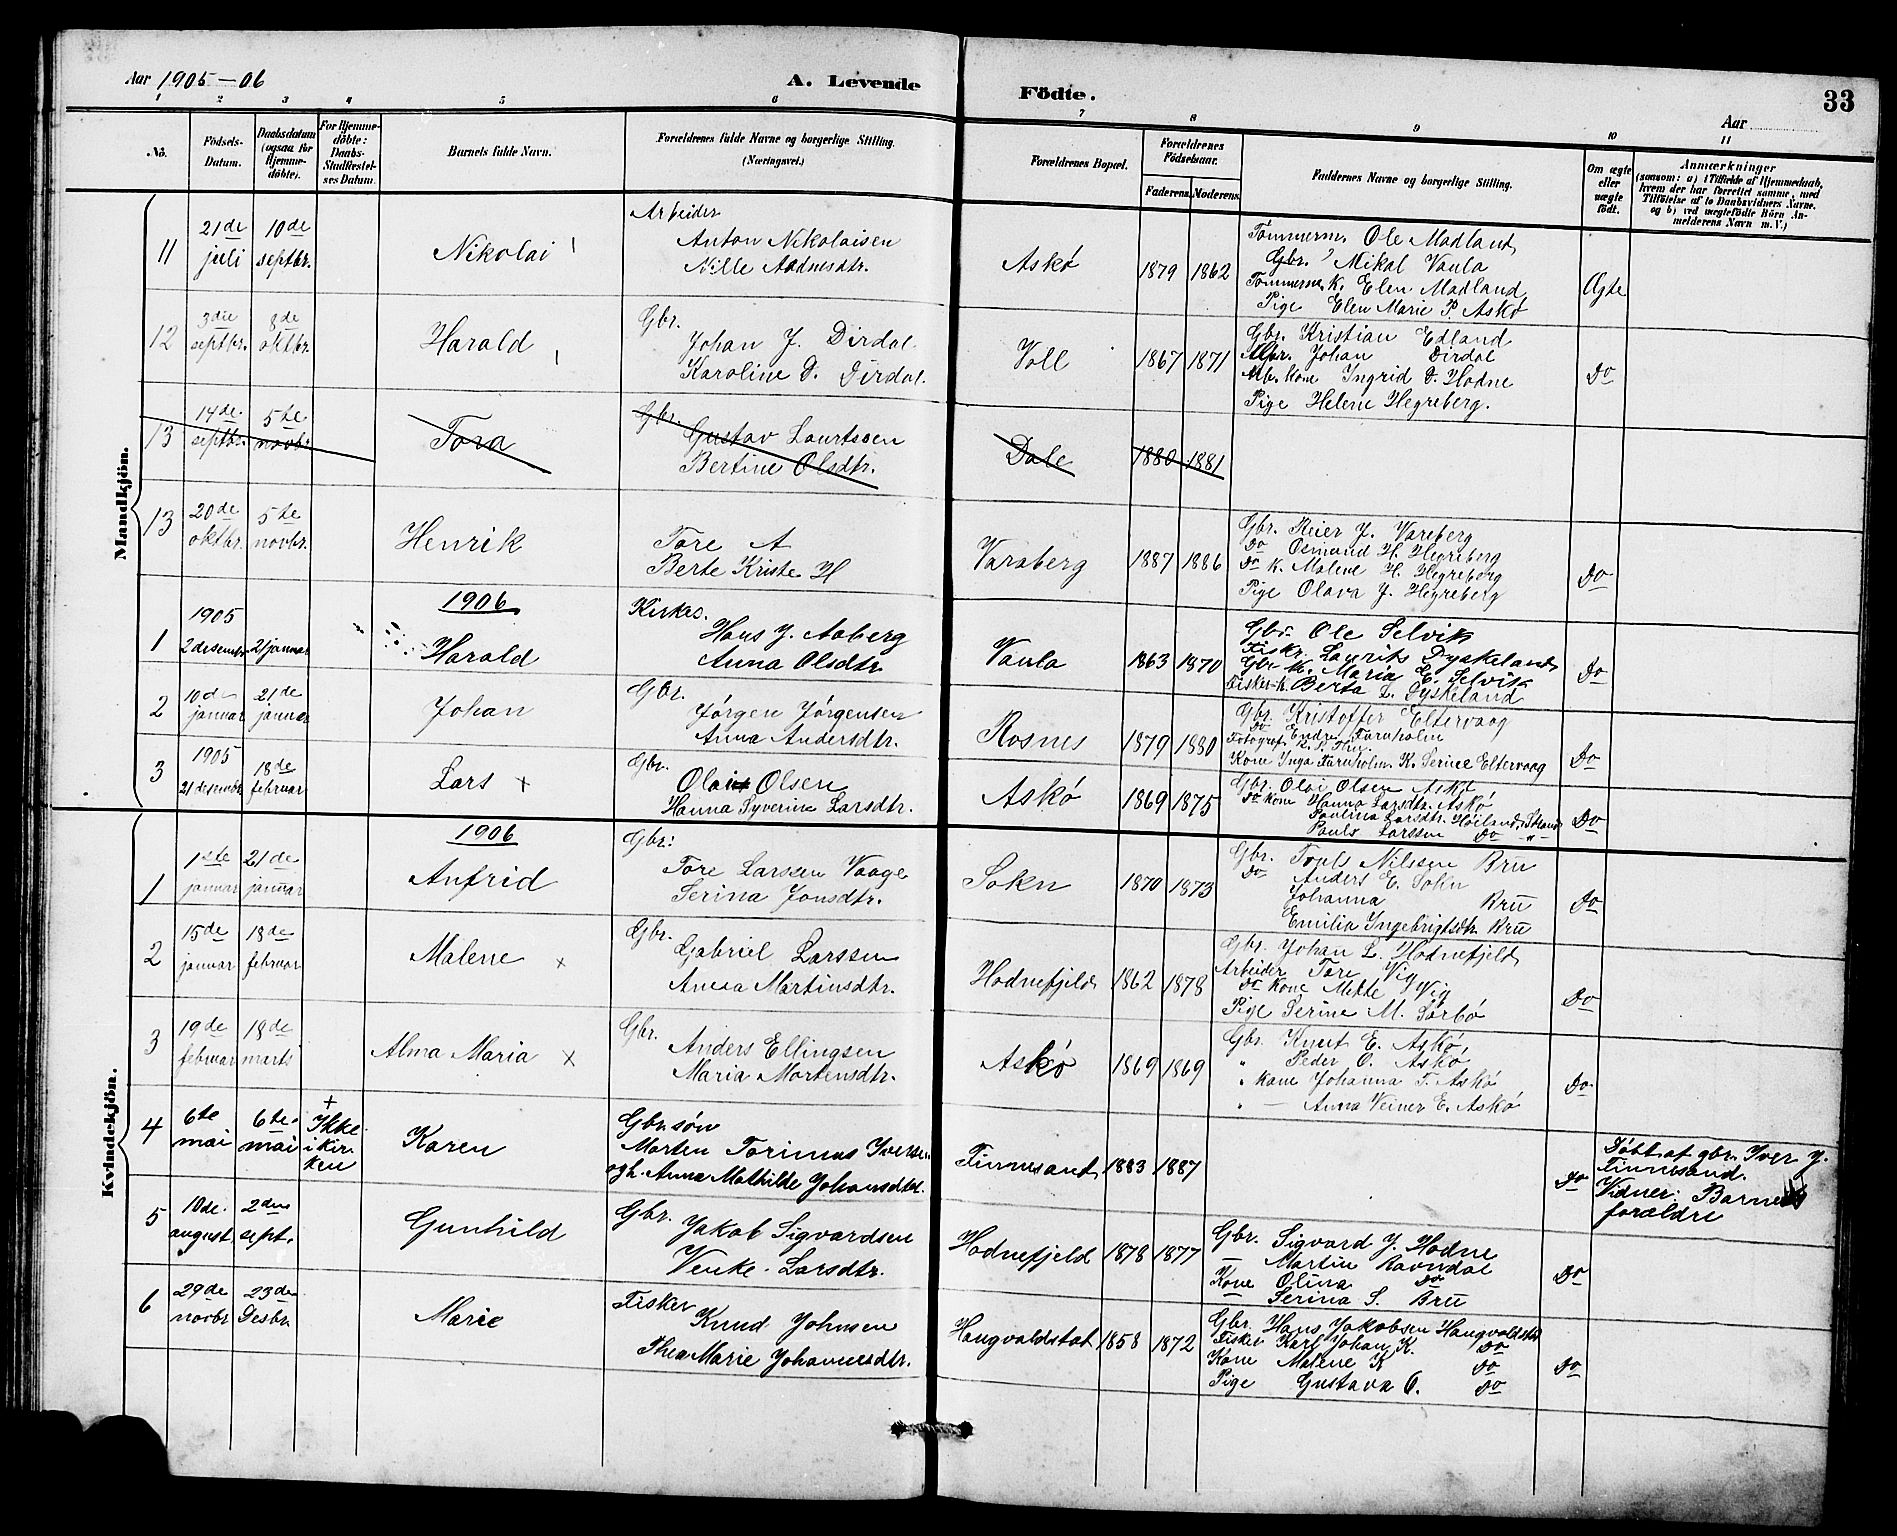 Aar 1905-06
A. Levende Födte.
Aar
33
1 2 3 4 5 6 7 8 9 10 11
No.
Födsels-Datum.
Daabsdatum (ogsaa for Hjemmedöbte).
For Hjemmedöbte: Daabs-Stadfæstelses Datum.
Barnets fulde Navn.
Forældrenes fulde Navne og borgerlige Stilling. (Næringsvei.)
Forældrenes Bopæl.
Forældrenes Födselsaar.
Faderens. Moderens.
Faddernes Navne og borgerlige Stilling.
Om ægte eller uægte födt.
Anmærkninger
(saasom: a) i Tilfælde af Hjemmedaab, hvem der har forrettet samme, med Tilföielse af to Daabsvidners Navne. og b) ved uægtefödte Börn Anmelderens Navn m. V.)
Mandkjön.
11 21de juli 10de septbr. Nikolai
Arbeider
Anton Nikolaisen
Nille Aadnesdtr.
Askø 1879 1862
Tømmerm. Ole Madland
Gbr. Mikal Vaula
Tømmerm. k. Elen Madland
Pige Elen Marie P. Askø
Ægte
12 3die septbr. 8de oktbr. Harald
Gbr.
Johan J. Dirdal
Karoline D. Dirdal.
Voll 1867 1871
Gbr. Kristian Edland
Gbr. Johan Dirdal
Kone Ingrid D. Hodne
Pige Helene Hegreberg.
Do
13 14de septbr. 5te novbr. Tora
Gbr.
Gustav Lauritssen
Bertine Olsdtr.
Dale 1880 1881
13 20de oktbr. 5te novbr. Henrik
Tore A
Berte Kriste H
Varaberg 1887 1886
Gbr. Reier J. Vareberg
Do Osmund H. Hegreberg
Do k. Malene H. Hegreberg
Pige Olava J. Hegreberg
Do
1906
1 1905 2 desembr. 21 januar Harald
Kirkes.
Hans J. Aaberg
Anna Olsdtr
Vaula 1863 1870
Gbr. Ole Selvik
Fiskr. Laurits Dyskeland
Gbr. k. Maria E. Selvik
Fisker k. Berta L. Dyskeland
Do
2 10de januar 21de januar Johan
Gbr.
Jørgen Jørgensen
Anna Andersdtr.
Rosnes 1879 1880
Gbr. Kristoffer Eltervaag
Do Endre Furuholm
Fotograf
Kone Inga Furuholm K. Serine Eltervaag
Do
3 1905 21 desembr. 18de februar Lars +
Gbr.
Olai Olsen
Hanna Syverine Larsdtr.
Askø 1869 1875
Gbr. Olai Olsen Askø
Do Kone Hanna Larsdtr. Askø
Paulina Larsdtr. Høiland, Strand
Pauls Larssen Do "
Do
Kvindekjön.
1906
1 1ste januar 21de januar Anfrid
Gbr:
Tore Larssen Vaage
Serina Jonsdtr.
Sokn 1870 1873
Gbr. Troels Nilssen Bru
Do Anders E. Sokn
Johanna Bru
Emilia Ingebrigtsdtr. Bru
Do
2 15de januar 18de februar Malene x
Gbr.
Gabriel Larssen
Anna Martinsdtr.
Hodnefjeld 1862 1878
Gbr. Johan L. Hodnefjeld
Arbeider Tore Vig
Do Kone Mette Vig
Pige Serine M. Sørbø
Do
3 19de februar 18de marts Alma Maria x
Gbr.
Anders Ellingsen
Maria Mortensdtr.
Askø 1869 1869
Gbr. Knut E. Askø,
" Peder O. Askø
" Kone Johanna T. Askø
" — Anna Veiner E. Askø
Do
4 6te mai 6te mai + Ikke i kirken Karen
Gbr.søn
Morten Torinus Iversen
og h. Anna Mathilde Johansdtr.
Finnesand 1883 1887
Do
Døbt af gbr. Iver J. Finnesand.
Vidner: Barnets forældre
5 10de august. 2den sept. Gunhild
Gbr. Jakob Sigvardsen
Venke Larsdtr.
Hodnefjeld 1878 1877
Gbr. Sigvard J. Hodne
— Martin Ravndal
Kone Olina Do
— Serina S. Bru
Do
6 29de novbr 23de Desbr. Marie
Fisker
Knud Johnsen
Thea Marie Johannesdtr.
Haugvaldstad 1858 1872
Gbr. Hans Jakobsen Haugvaldstad
Fisker Karl Johan K. Do
Kone Malene K Do
Pige Gustava O. Do
Do